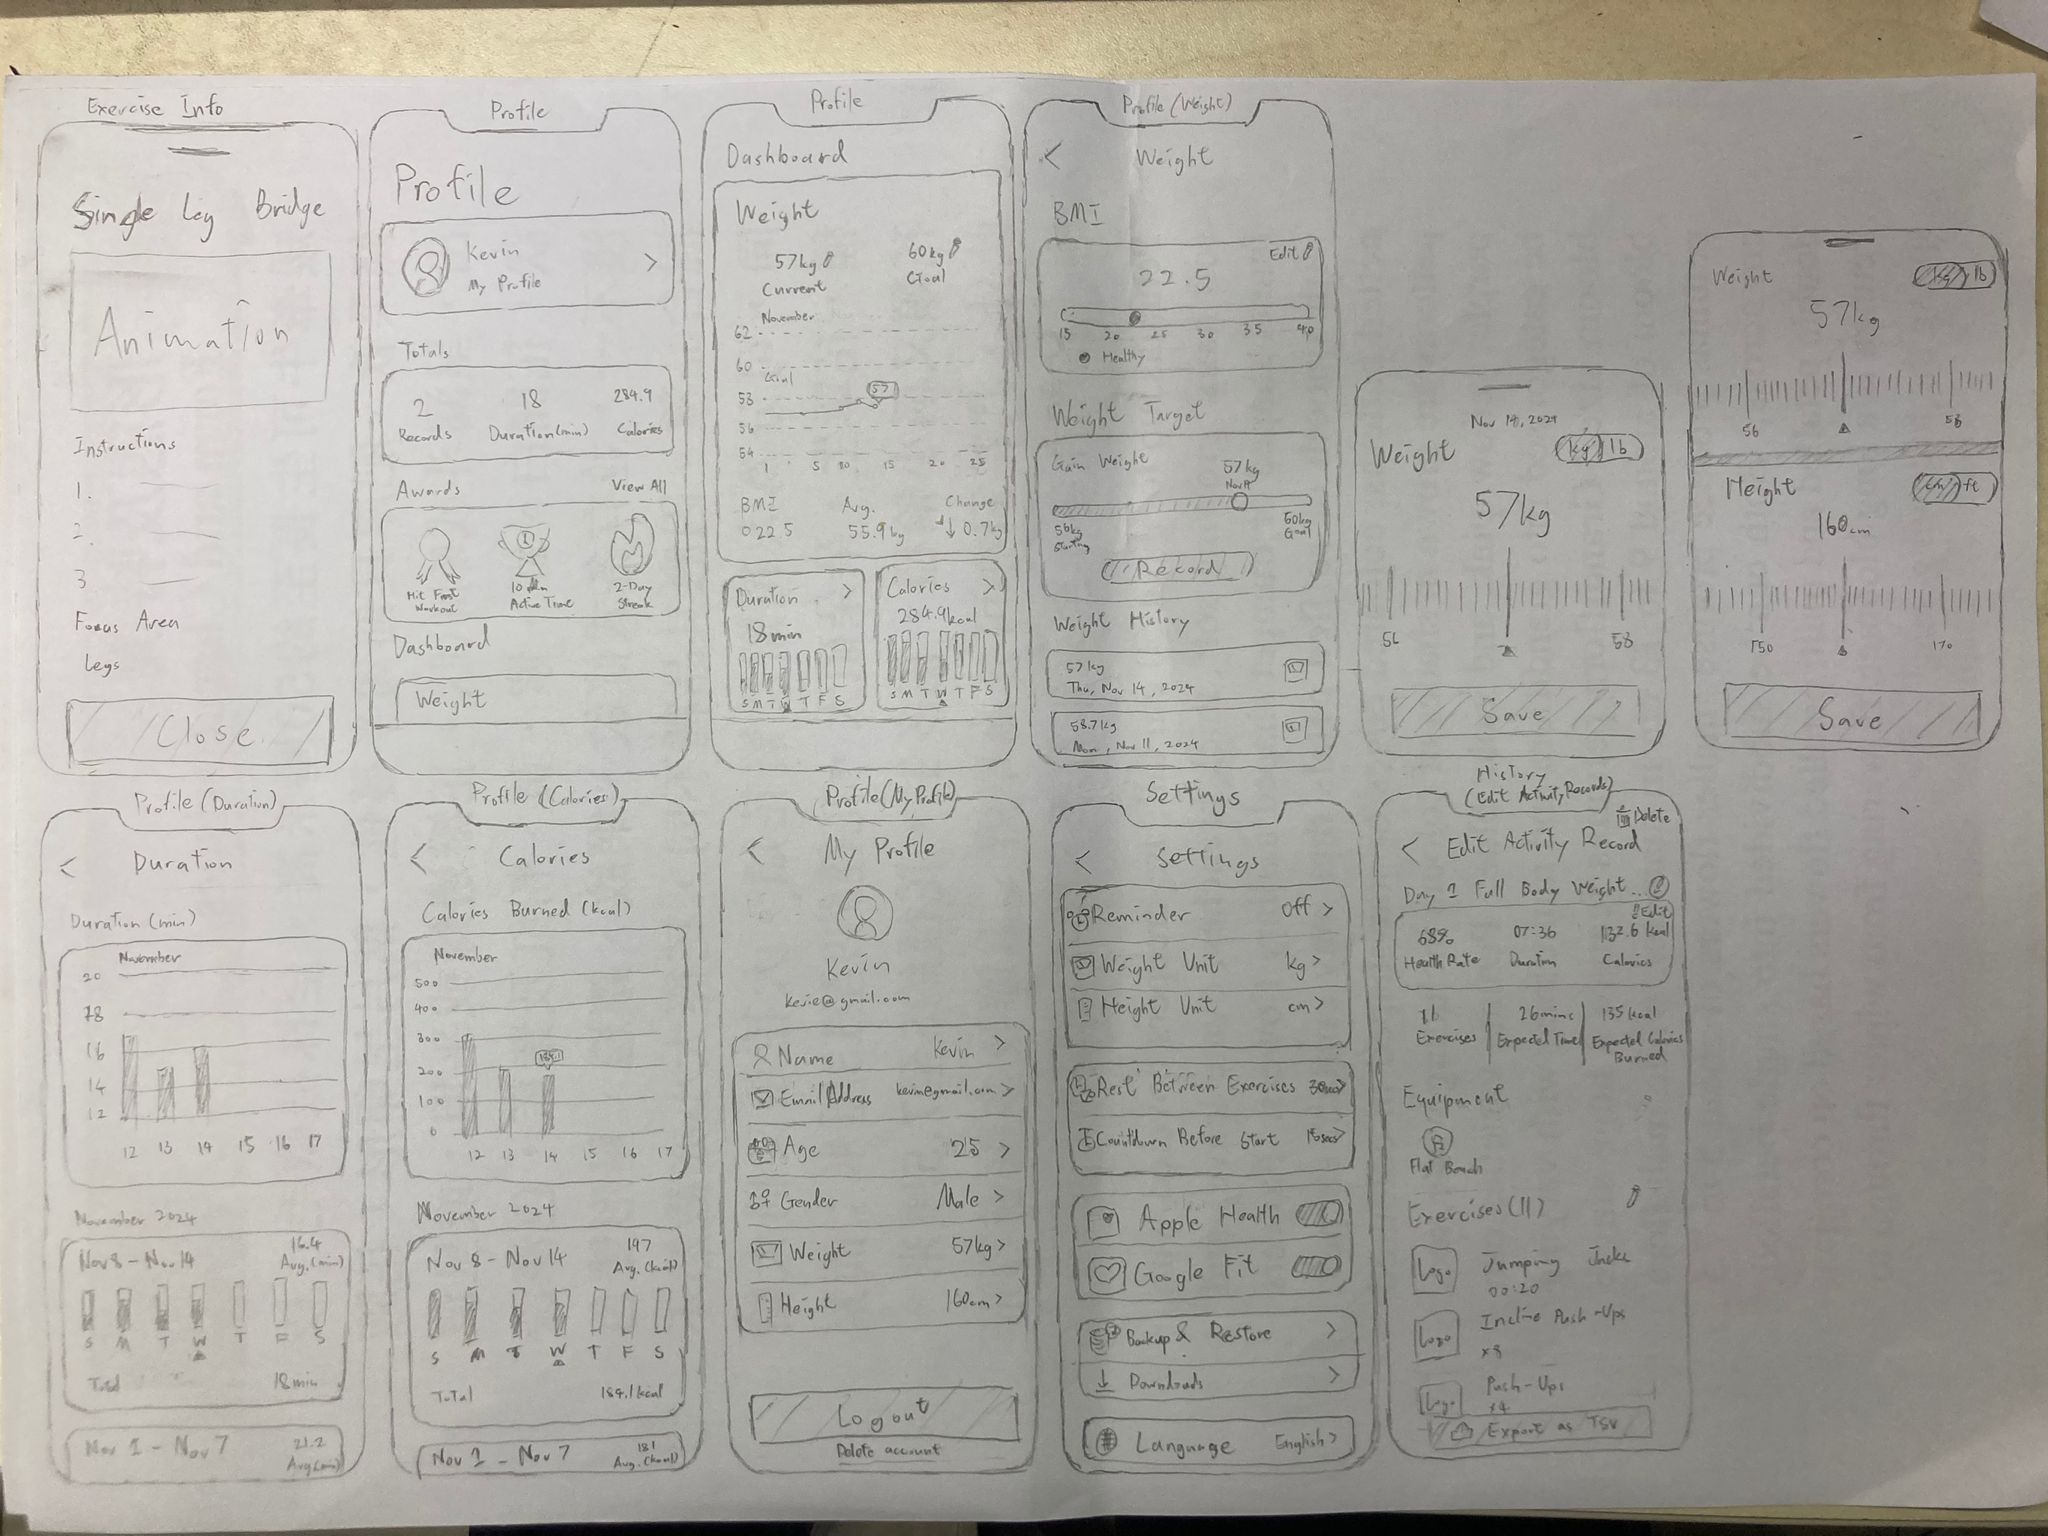 Exercise Info
Single Leg Bridge
Animation
Instructions
1.
2.
3
Focus Area
Legs
Close
Profile
Profile
Kevin
My Profile
Totals
2 18 284.9
Records Duration(min) Calories
Awards View All
Hit First Workout
10 Min Active Time
2-Day Streak
Dashboard
Weight
Profile
Dashboard
Weight
57kg 60kg
Current Goal
November
62
60
Goal
58
57
56
54
1 5 10 15 20 25
BMI Avg. Change
22.5 55.9kg ↓ 0.7kg
Duration >
18min
S M T W T F S
Calories >
284.9kcal
S M T W T F S
Profile (Weight)
< Weight
BMI
Edit
22.5
15 20 25 30 35 40
Healthy
Weight Target
Gain Weight
57kg
Nov 14
56kg 60kg
Starting Goal
Record
Weight History
57kg
Thu, Nov 14, 2024
58.7kg
Mon, Nov 11, 2024
Nov 14, 2024
Weight kg lb
57kg
56 58
Save
Weight kg lb
57kg
56 58
Height cm ft
160cm
150 170
Save
Profile (Duration)
< Duration
Duration (min)
November
20
18
16
14
12
12 13 14 15 16 17
November 2024
Nov 8 - Nov 14 16.4
Avg. (min)
S M T W T F S
Total 18min
Nov 1 - Nov 7 21.2
Avg (min)
Profile (Calories)
< Calories
Calories Burned (kcal)
November
500
400
300
200
100
0
12 13 14 15 16 17
November 2024
Nov 8 - Nov 14 147
Avg. (kcal)
S M T W T F S
Total 184.1kcal
Nov 1 - Nov 7 181
Avg. (kcal)
Profile (My Profile)
< My Profile
Kevin
kevie@gmail.com
Name Kevin >
Email Address kevin@gmail.com >
Age 25 >
Gender Male >
Weight 57kg >
Height 160cm >
Logout
Delete account
Settings
< Settings
Reminder Off >
Weight Unit kg >
Height Unit cm >
Rest Between Exercises 30secs >
Countdown Before Start 15secs >
Apple Health
Google Fit
Backup & Restore >
Downloads >
Language English >
History
(Edit Activity Records)
Delete
< Edit Activity Record
Day 1 Full Body Weight...
Edit
68% 07:36 132.6 kcal
Health Rate Duration Calories
11 26mins 135kcal
Exercises Expected Time Expected Calories Burned
Equipment
Flat Bench
Exercises (11)
Logo Jumping Jacks
00:20
Logo Incline Push-Ups
x8
Logo Push-Ups
x4
Export as TSV